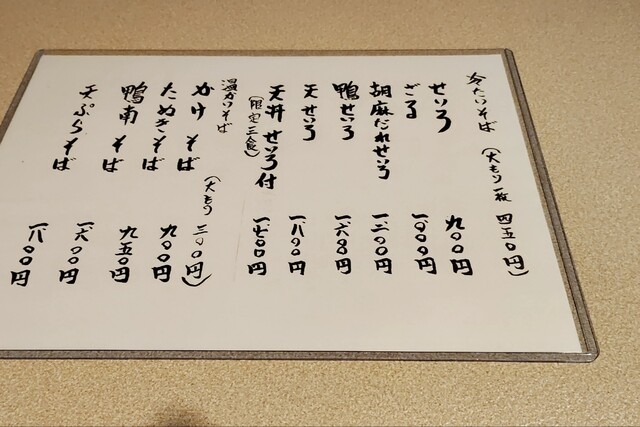 冷たいそば（大もり一枚 四五〇円）
せいろ 九〇〇円
ざる 一〇〇〇円
胡麻だれせいろ 一二〇〇円
鴨せいろ 一六〇〇円
天せいろ 一八〇〇円
天丼 せいろ付 一七〇〇円
（限定三食）
温かいそば（大もり 三〇〇円）
かけそば 九〇〇円
たぬきそば 九五〇円
鴨南そば 一六〇〇円
天ぷらそば 一八〇〇円